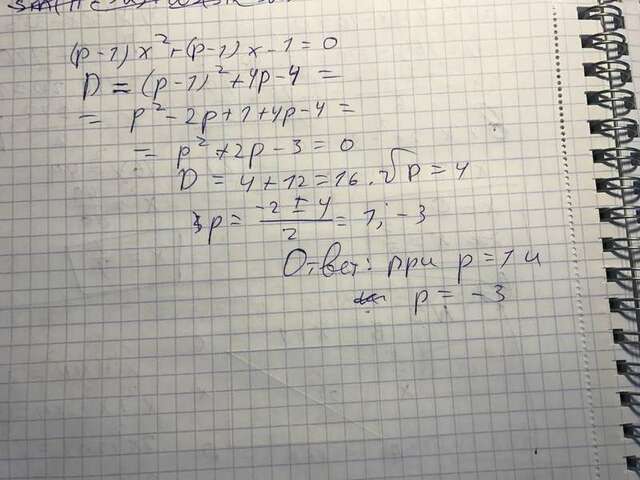 (p-1)x²+(p-1)x-1=0
D=(p-1)²+4p-4=
= p²-2p+1+4p-4=
= p²+2p-3=0
D=4+12=16. √D=4
p= (-2±4)/2 = 1; -3
Ответ: при p=1 и
p=-3